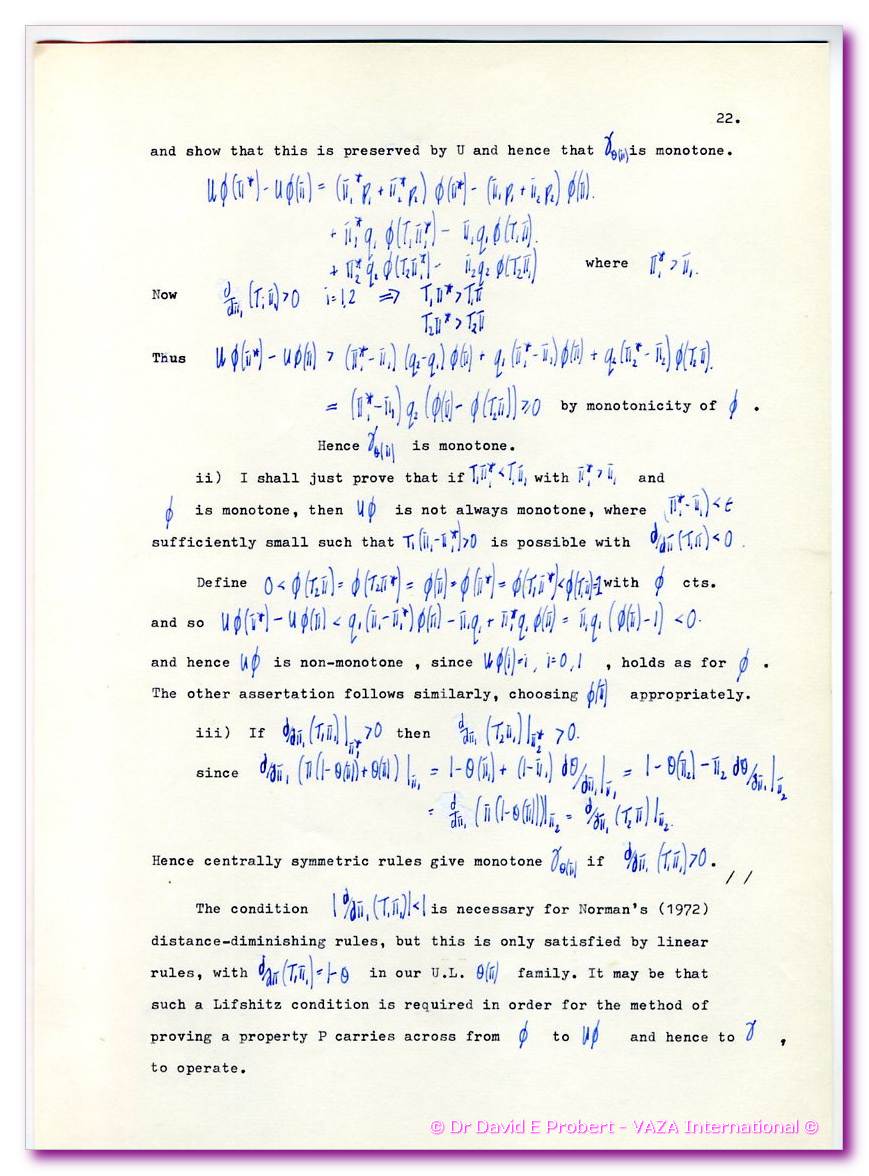 22.
and show that this is preserved by U and hence that γ_θ(π̄) is monotone.
Uφ(π̄*) - Uφ(π̄) = (π̄₁*p₁ + π̄₂*p₂) φ(π̄*) - (π̄₁p₁ + π̄₂p₂) φ(π̄).
+ π̄₁*q₁ φ(T₁π̄₁*) - π̄₁q₁φ(T₁π̄).
+ π̄₂*q₂ φ(T₂π̄₁*) - π̄₂q₂ φ(T₂π̄) where π̄₁* > π̄₁.
Now d/dπ̄₁ (Tᵢπ̄₁) > 0 i=1,2 ⇒ T₁π̄* > T₁π̄
T₂π̄* > T₂π̄
Thus Uφ(π̄*) - Uφ(π̄) > (π̄₁* - π̄₁) (q₂-q₁) φ(π̄) + q₁(π̄₁* - π̄₁)φ(π̄) + q₂(π̄₂* - π̄₂) φ(T₂π̄).
= (π̄₁* - π̄₁) q₂ (φ(π̄) - φ(T₂π̄)) ≥ 0 by monotonicity of φ .
Hence γ_θ(π̄) is monotone.
ii) I shall just prove that if T₁π̄₁* < T₁π̄₁ with π̄₁* > π̄₁ and
φ is monotone, then Uφ is not always monotone, where (π̄₁* - π̄₁) < ε
sufficiently small such that T₁(π̄₁ - π̄₁*) > 0 is possible with d/dπ̄ (T₁π̄) < 0 .
Define 0 < φ(T₂π̄) = φ(T₂π̄*) = φ(π̄) = φ(π̄*) = φ(T₁π̄*) < φ(T₁π̄) = 1 with φ cts.
and so Uφ(π̄*) - Uφ(π̄) < q₁(π̄₁ - π̄₁*) φ(π̄) - π̄₁q₁ + π̄₁*q₁ φ(π̄) = π̄₁q₁ (φ(π̄) - 1) < 0.
and hence Uφ is non-monotone , since Uφ(i) = i, i=0,1 , holds as for φ .
The other assertation follows similarly, choosing φ(π̄) appropriately.
iii) If d/dπ̄₁ (T₁π̄₁)|π̄₁* > 0 then d/dπ̄₁ (T₂π̄₁)|π̄₂* > 0.
since d/dπ̄₁ (π̄(1-θ(π̄)) + θ(π̄))|π̄₁ = 1-θ(π̄₁) + (1-π̄₁) dθ/dπ̄₁|π̄₁ = 1-θ(π̄₂) - π̄₂ dθ/dπ̄₁|π̄₂
= d/dπ̄₁ (π̄(1-θ(π̄)))|π̄₂ = d/dπ̄₁ (T₂π̄)|π̄₂.
Hence centrally symmetric rules give monotone γ_θ(π̄) if d/dπ̄₁ (T₁π̄₁) > 0. //
The condition |d/dπ̄₁ (T₁π̄₁)| < 1 is necessary for Norman's (1972)
distance-diminishing rules, but this is only satisfied by linear
rules, with d/dπ̄ (T₁π̄₁) = 1-θ in our U.L. θ(π̄) family. It may be that
such a Lifshitz condition is required in order for the method of
proving a property P carries across from φ to Uφ and hence to γ ,
to operate.
© Dr David E Probert - VAZA International ©